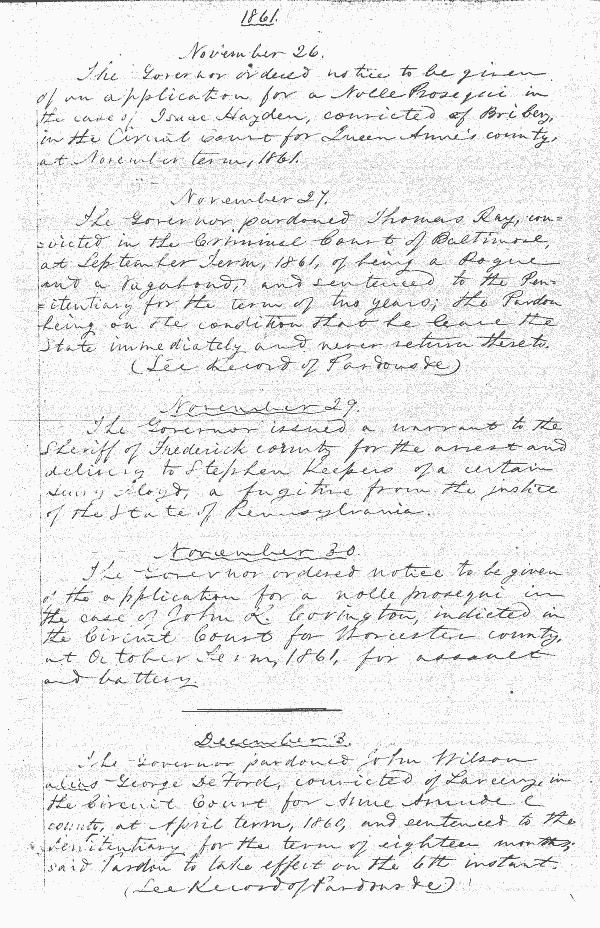 1861.
November 26.
The Governor ordered notice to be given
of an application for a Nolle Prosequi in
the case of Isaac Hayden, convicted of Bribery,
in the Circuit Court for Queen Anne's county,
at November term, 1861.
November 27.
The Governor pardoned Thomas Ray, con=
=victed in the Criminal Court of Baltimore,
at September Term, 1861, of being a Rogue
and a Vagabond, and sentenced to the Pen=
=itentiary for the term of two years; the Pardon
being on the condition that he leave the
State immediately and never return thereto.
(See Record of Pardons &c)
November 29.
The Governor issued a warrant to the
Sheriff of Frederick county for the arrest and
delivery to Stephen Keepers of a certain
Lloyd, a fugitive from the justice
of the State of Pennsylvania.
November 30.
The Governor ordered notice to be given
of the application for a nolle prosequi in
the case of John K. Covington, indicted in
the Circuit Court for Worcester county,
at October Term, 1861, for assault
and battery
December 3.
The Governor pardoned John Wilson
alias George DeFord, convicted of Larceny, in
the Circuit Court for Anne Arundel
county, at April term, 1860, and sentenced to the
Penitentiary for the term of eighteen months;
said Pardon to take effect on the 6th instant.
(See Record of Pardons &c)